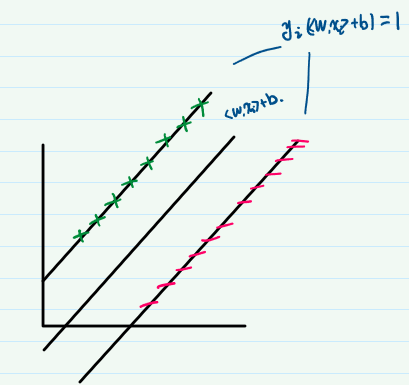 yᵢ(<w,xᵢ>+b)=1
<w,xᵢ>+b.